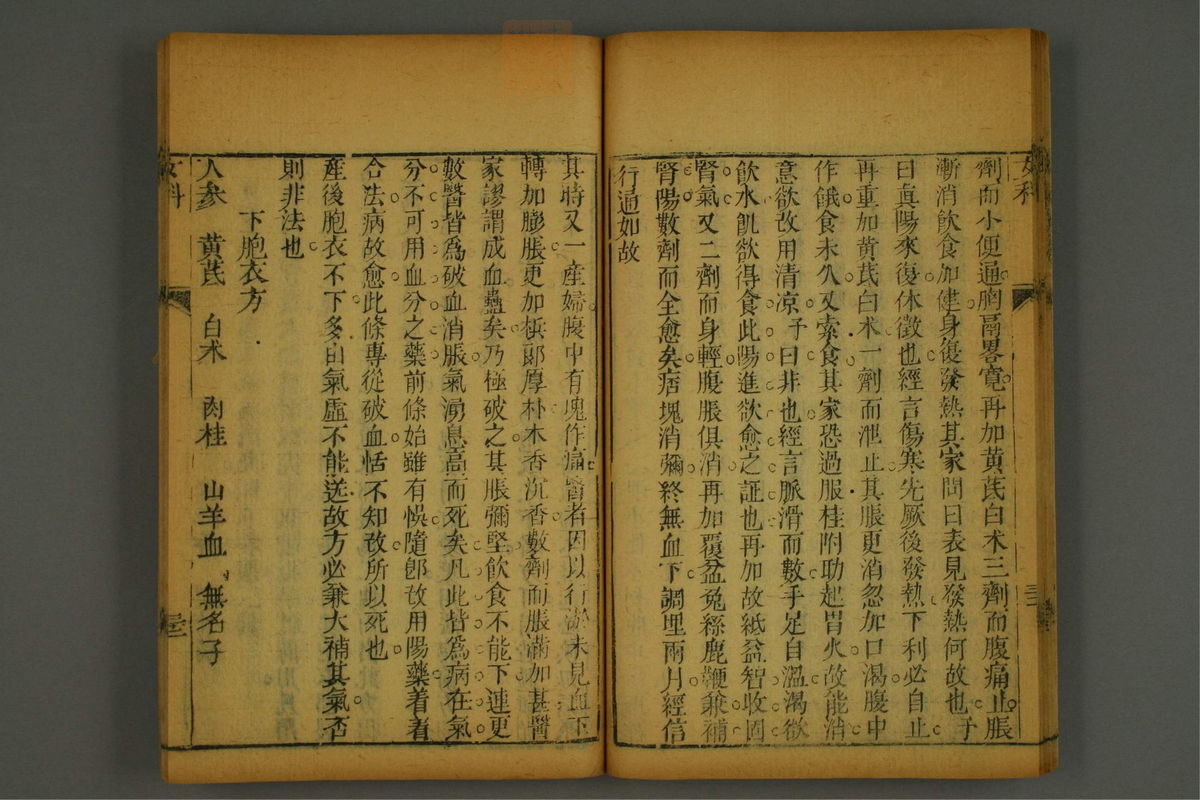 女科
劑而小便通胸膈畧寬再加黃芪白术三劑而腹痛止脹
漸消飲食加健身復發熱其家問曰表見發熱何故也予
曰真陽來復休徵也經言傷寒先厥後發熱下利必自止
再重加黃芪白术一劑而泄止其脹更消忽加口渴腹中
作餓食未久又索食其家恐過服桂附助起胃火故能消
意欲改用清凉予曰非也經言脈滑而數手足自溫渴欲
飲水飢欲得食此陽進欲愈之証也再加故紙益智收固
腎氣又二劑而身輕腹脹俱消再加覆盆兔絲鹿鞭兼補
腎陽數劑而全愈矣痞塊消彌終無血下調理兩月經信
行通如故
其時又一產婦腹中有塊作痛醫者因以行瘀未見血下
轉加膨脹更加檳郎厚朴木香沉香數劑而脹滿加甚醫
家謬謂成血蠱矣乃極破之其脹彌堅飲食不能下連更
數醫皆為破血消脹氣湧息高而死矣凡此皆為病在氣
分不可用血分之藥前條始雖有悞隨卽改用陽藥着着
合法病故愈此條專從破血恬不知改所以死也
產後胞衣不下多由氣虛不能送故方必兼大補其氣否
則非法也
下胞衣方
人參　黃芪　白术　肉桂　山羊血　無名子
女科